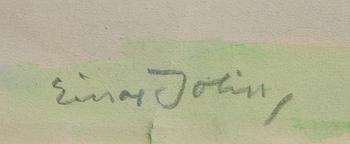 Einar Jolin,